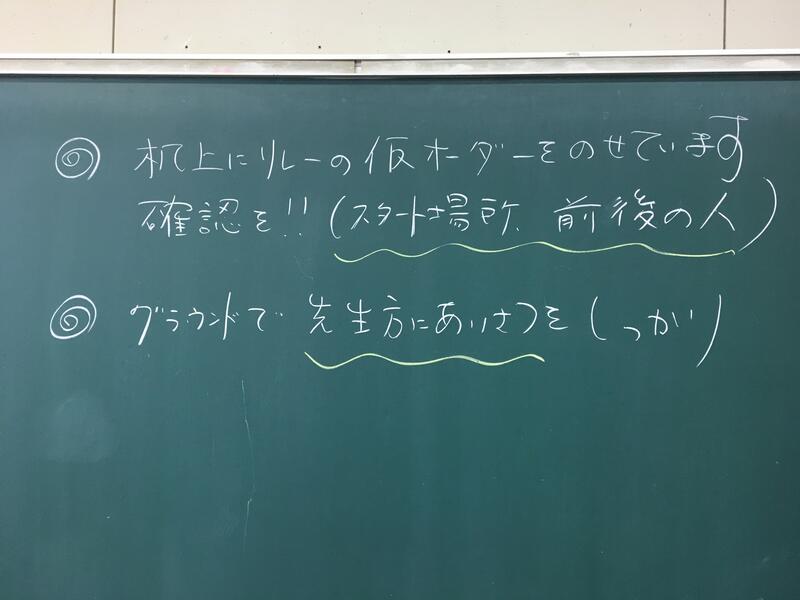 ◎ 机上にリレーの仮オーダーをのせています
確認を!!(スタート場所、前後の人)
◎ グラウンドで先生方にあいさつをしっかり